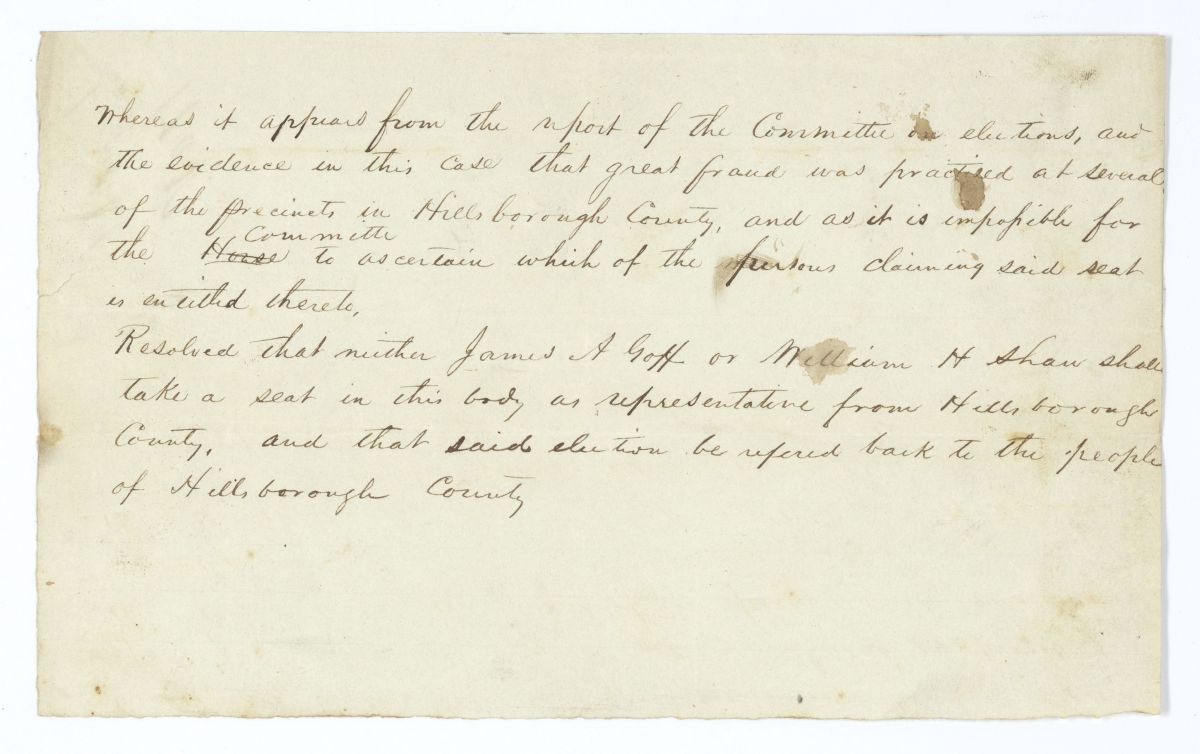 Whereas it appears from the report of the Committee on elections, and
the evidence in this case that great fraud was practised at several
of the precincts in Hillsborough County, and as it is impossible for
Committe
the House to ascertain which of the persons claiming said seat
is entitled thereto,
Resolved that neither James A Goff or William H Shaw shall
take a seat in this body as representative from Hillsborough
County, and that said election be refered back to the people
of Hillsborough County